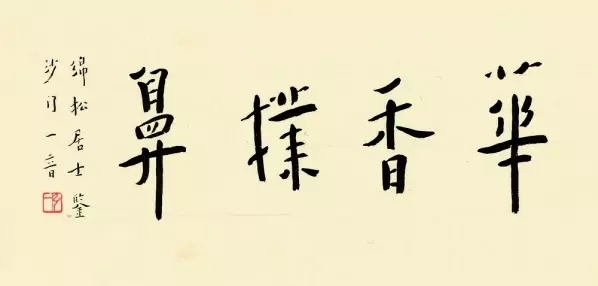 華香撲鼻
綿松居士鑒
沙門一音